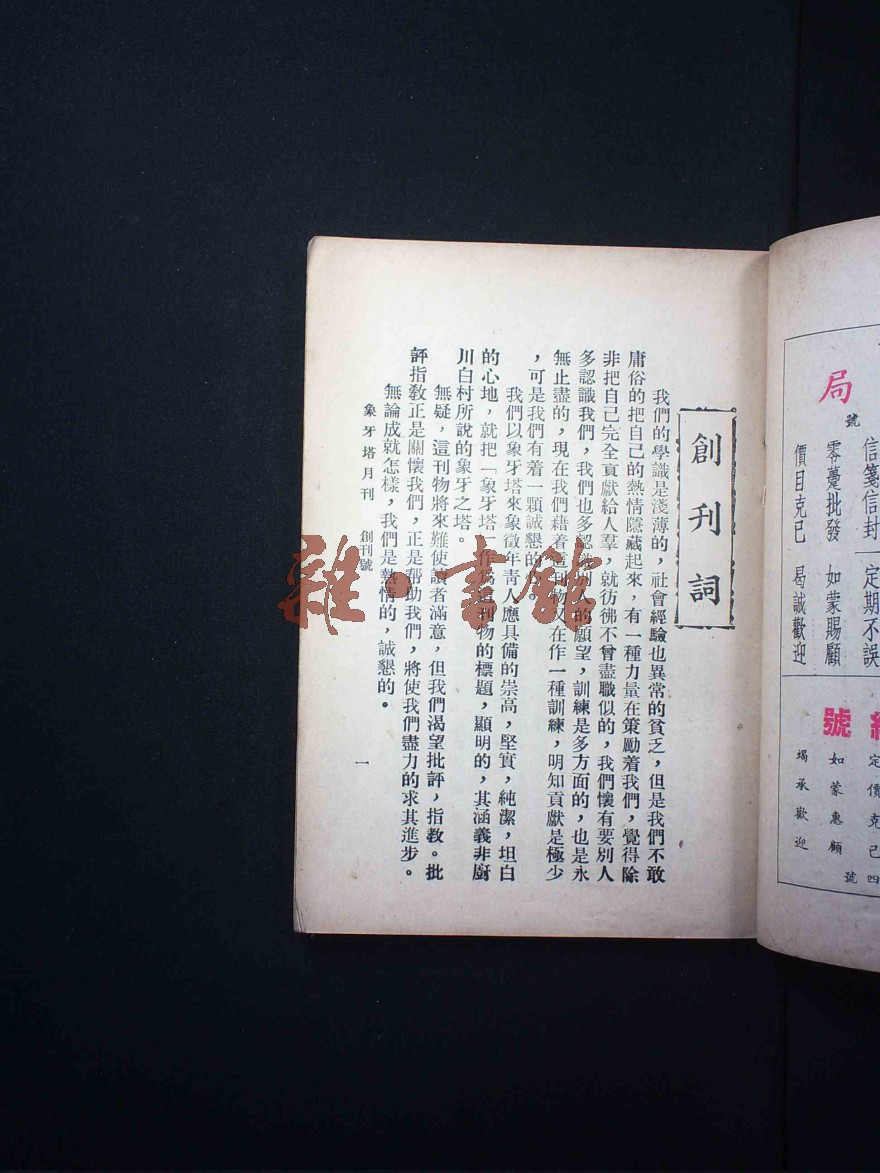 局
號
信箋信封
定期不誤
零躉批發
如蒙賜顧
價目克已
曷誠歡迎
號
定價克己
如蒙惠顧
竭承歡迎
四
號
創刊詞
我們的學識是淺薄的，社會經驗也異常的貧乏，但是我們不敢
庸俗的把自己的熱情隱藏起來，有一種力量在策勵着我們，覺得除
非把自己完全貢獻給人羣，就彷彿不曾盡職似的，我們懷有要別人
多認識我們，我們也多認識別人的願望，訓練是多方面的，也是永
無止盡的，現在我們藉着這刊物又在作一種訓練，明知貢獻是極少
，可是我們有着一顆誠懇的心。
我們以象牙塔來象徵年青人應具備的崇高，堅實，純潔，坦白
的心地，就把「象牙塔」作為這刊物的標題，顯明的，其涵義非廚
川白村所說的象牙之塔。
無疑，這刊物將來難使讀者滿意，但我們渴望批評，指敎。批
評指敎正是關懷我們，正是帮助我們，將使我們盡力的求其進步。
無論成就怎樣，我們是熱情的，誠懇的。
象牙塔月刊 創刊號
一
雜·書館